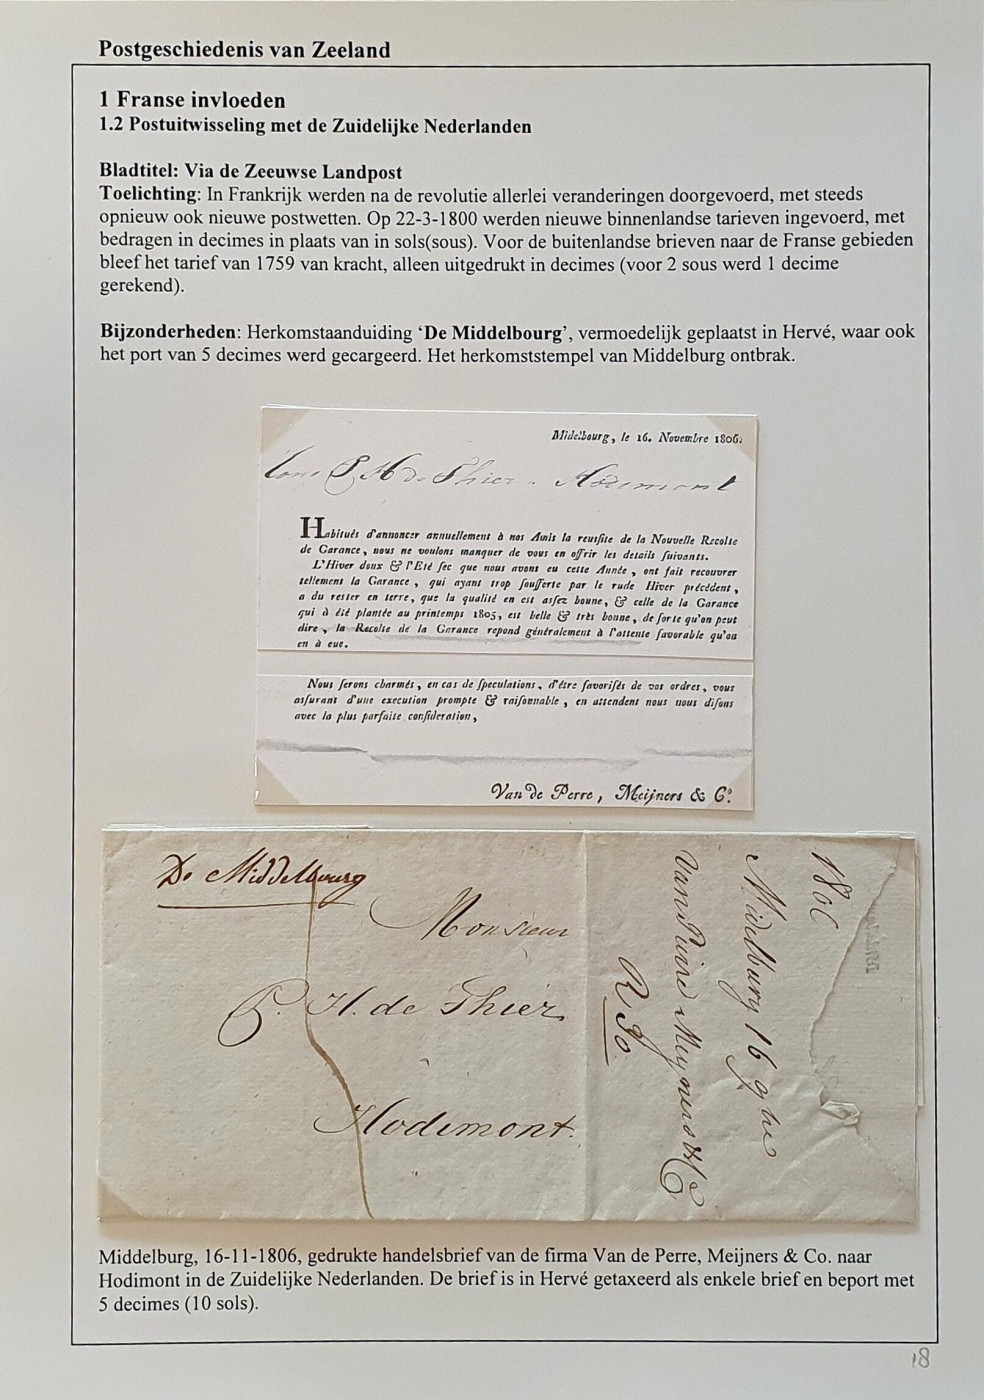 Postgeschiedenis van Zeeland
1 Franse invloeden
1.2 Postuitwisseling met de Zuidelijke Nederlanden
Bladtitel: Via de Zeeuwse Landpost
Toelichting: In Frankrijk werden na de revolutie allerlei veranderingen doorgevoerd, met steeds
opnieuw ook nieuwe postwetten. Op 22-3-1800 werden nieuwe binnenlandse tarieven ingevoerd, met
bedragen in decimes in plaats van in sols(sous). Voor de buitenlandse brieven naar de Franse gebieden
bleef het tarief van 1759 van kracht, alleen uitgedrukt in decimes (voor 2 sous werd 1 decime
gerekend).
Bijzonderheden: Herkomstaanduiding ‘De Middelbourg’, vermoedelijk geplaatst in Hervé, waar ook
het port van 5 decimes werd gecargeerd. Het herkomststempel van Middelburg ontbrak.
Midelbourg, le 16. Novembre 1806.
P H de Thier - Hodimont
Habitués d'annoncer annuellement à nos Amis la reussite de la Nouvelle Recolte
de Garance, nous ne voulons manquer de vous en offrir les details suivants.
L'Hiver doux & l'Eté sec que nous avons eu cette Année, ont fait recouvrer
tellement la Garance, qui ayant trop soufferte par le rude Hiver précédent,
a du rester en terre, que la qualité en est assez bonne, & celle de la Garance
qui à été plantée au printemps 1805, est belle & très bonne, de sorte qu'on peut
dire, la Recolte de la Garance repond généralement à l'attente favorable qu'on
en à eue.
Nous serons charmés, en cas de speculations, d'être favorisés de vos ordres, vous
assurant d'une execution prompte & raisonnable, en attendent nous nous disons
avec la plus parfaite consideration,
Van de Perre, Meijners & Co.
De Middelbourg
Monsieur
P. H. de Thier
Hodimont.
1806
Midelburg 16 9bre
Van de Perre Meyners & Co
R 30
Middelburg, 16-11-1806, gedrukte handelsbrief van de firma Van de Perre, Meijners & Co. naar
Hodimont in de Zuidelijke Nederlanden. De brief is in Hervé getaxeerd als enkele brief en beport met
5 decimes (10 sols).
18